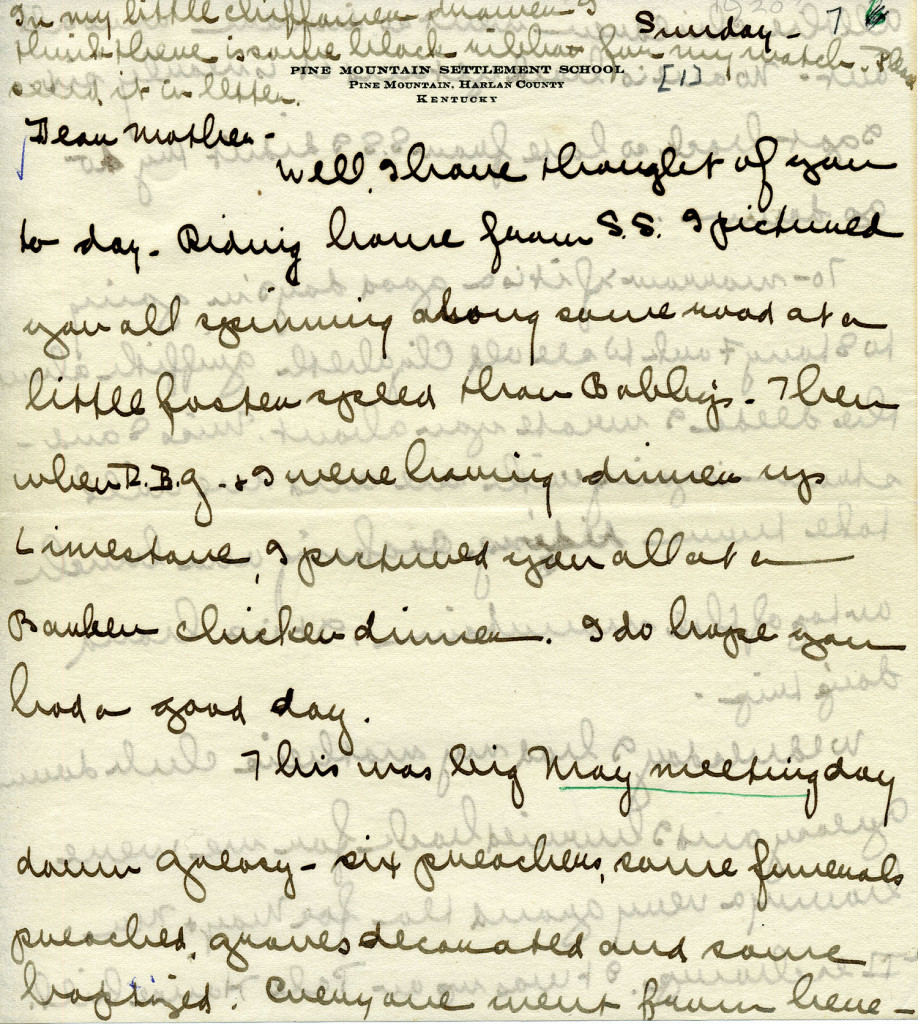 In my little chiffonier drawer I
think there is some black ribbon for my watch. Please
send it in letter.
Sunday - 7
[1]
PINE MOUNTAIN SETTLEMENT SCHOOL
PINE MOUNTAIN, HARLAN COUNTY
KENTUCKY
Dear Mother -
Well, I have thought of you
to day - Riding home from S.S. I pictured
you all spinning along some road at a
little faster speed than Bobby's - Then
when R.B.G. + I were having dinner up
Limestone, I pictured you all at a
Bauker chicken dinner. I do hope you
had a good day.
This was big May meeting day
down Greasy - six preachers, some funerals
preached, graves decorated and some
baptized. Everyone went from here -